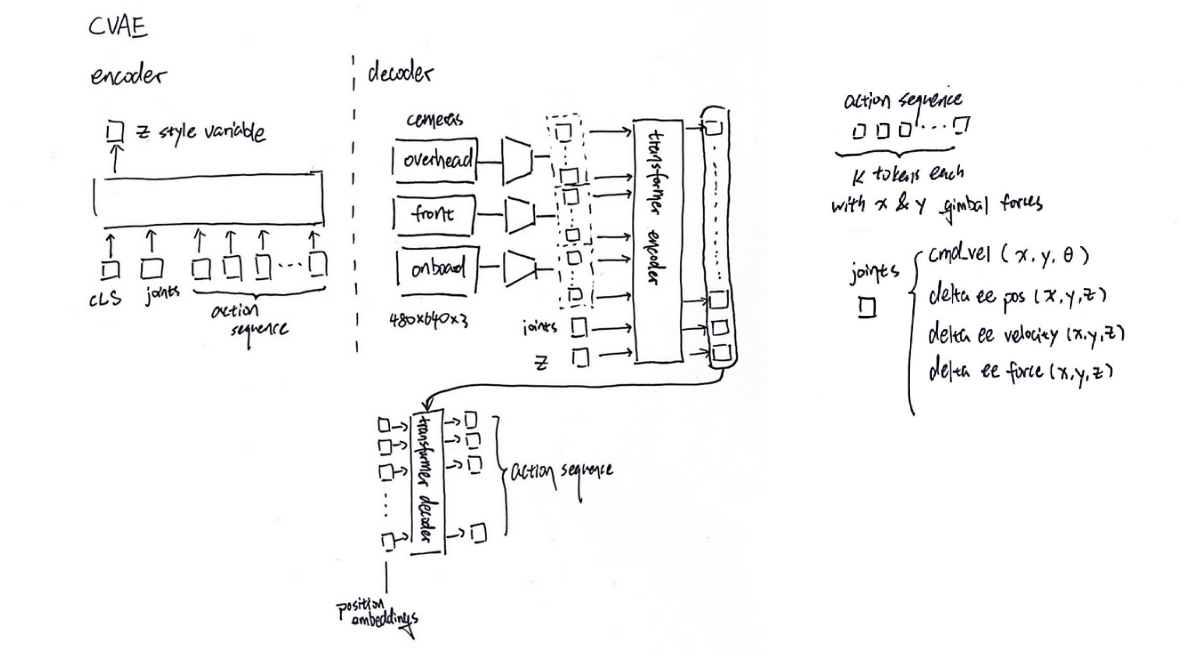 CVAE
encoder
z style variable
CLS
joints
action
sequence
decoder
cameras
overhead
front
onboad
480x640x3
joints
z
transformer encoder
transformer decoder
action sequence
position
embeddings
action sequence
K tokens each
with x & y gimbal forces
joints
cmd_vel (x, y, θ)
delta ee pos (x,y,z)
delta ee velocity (x,y,z)
delta ee force (x,y,z)